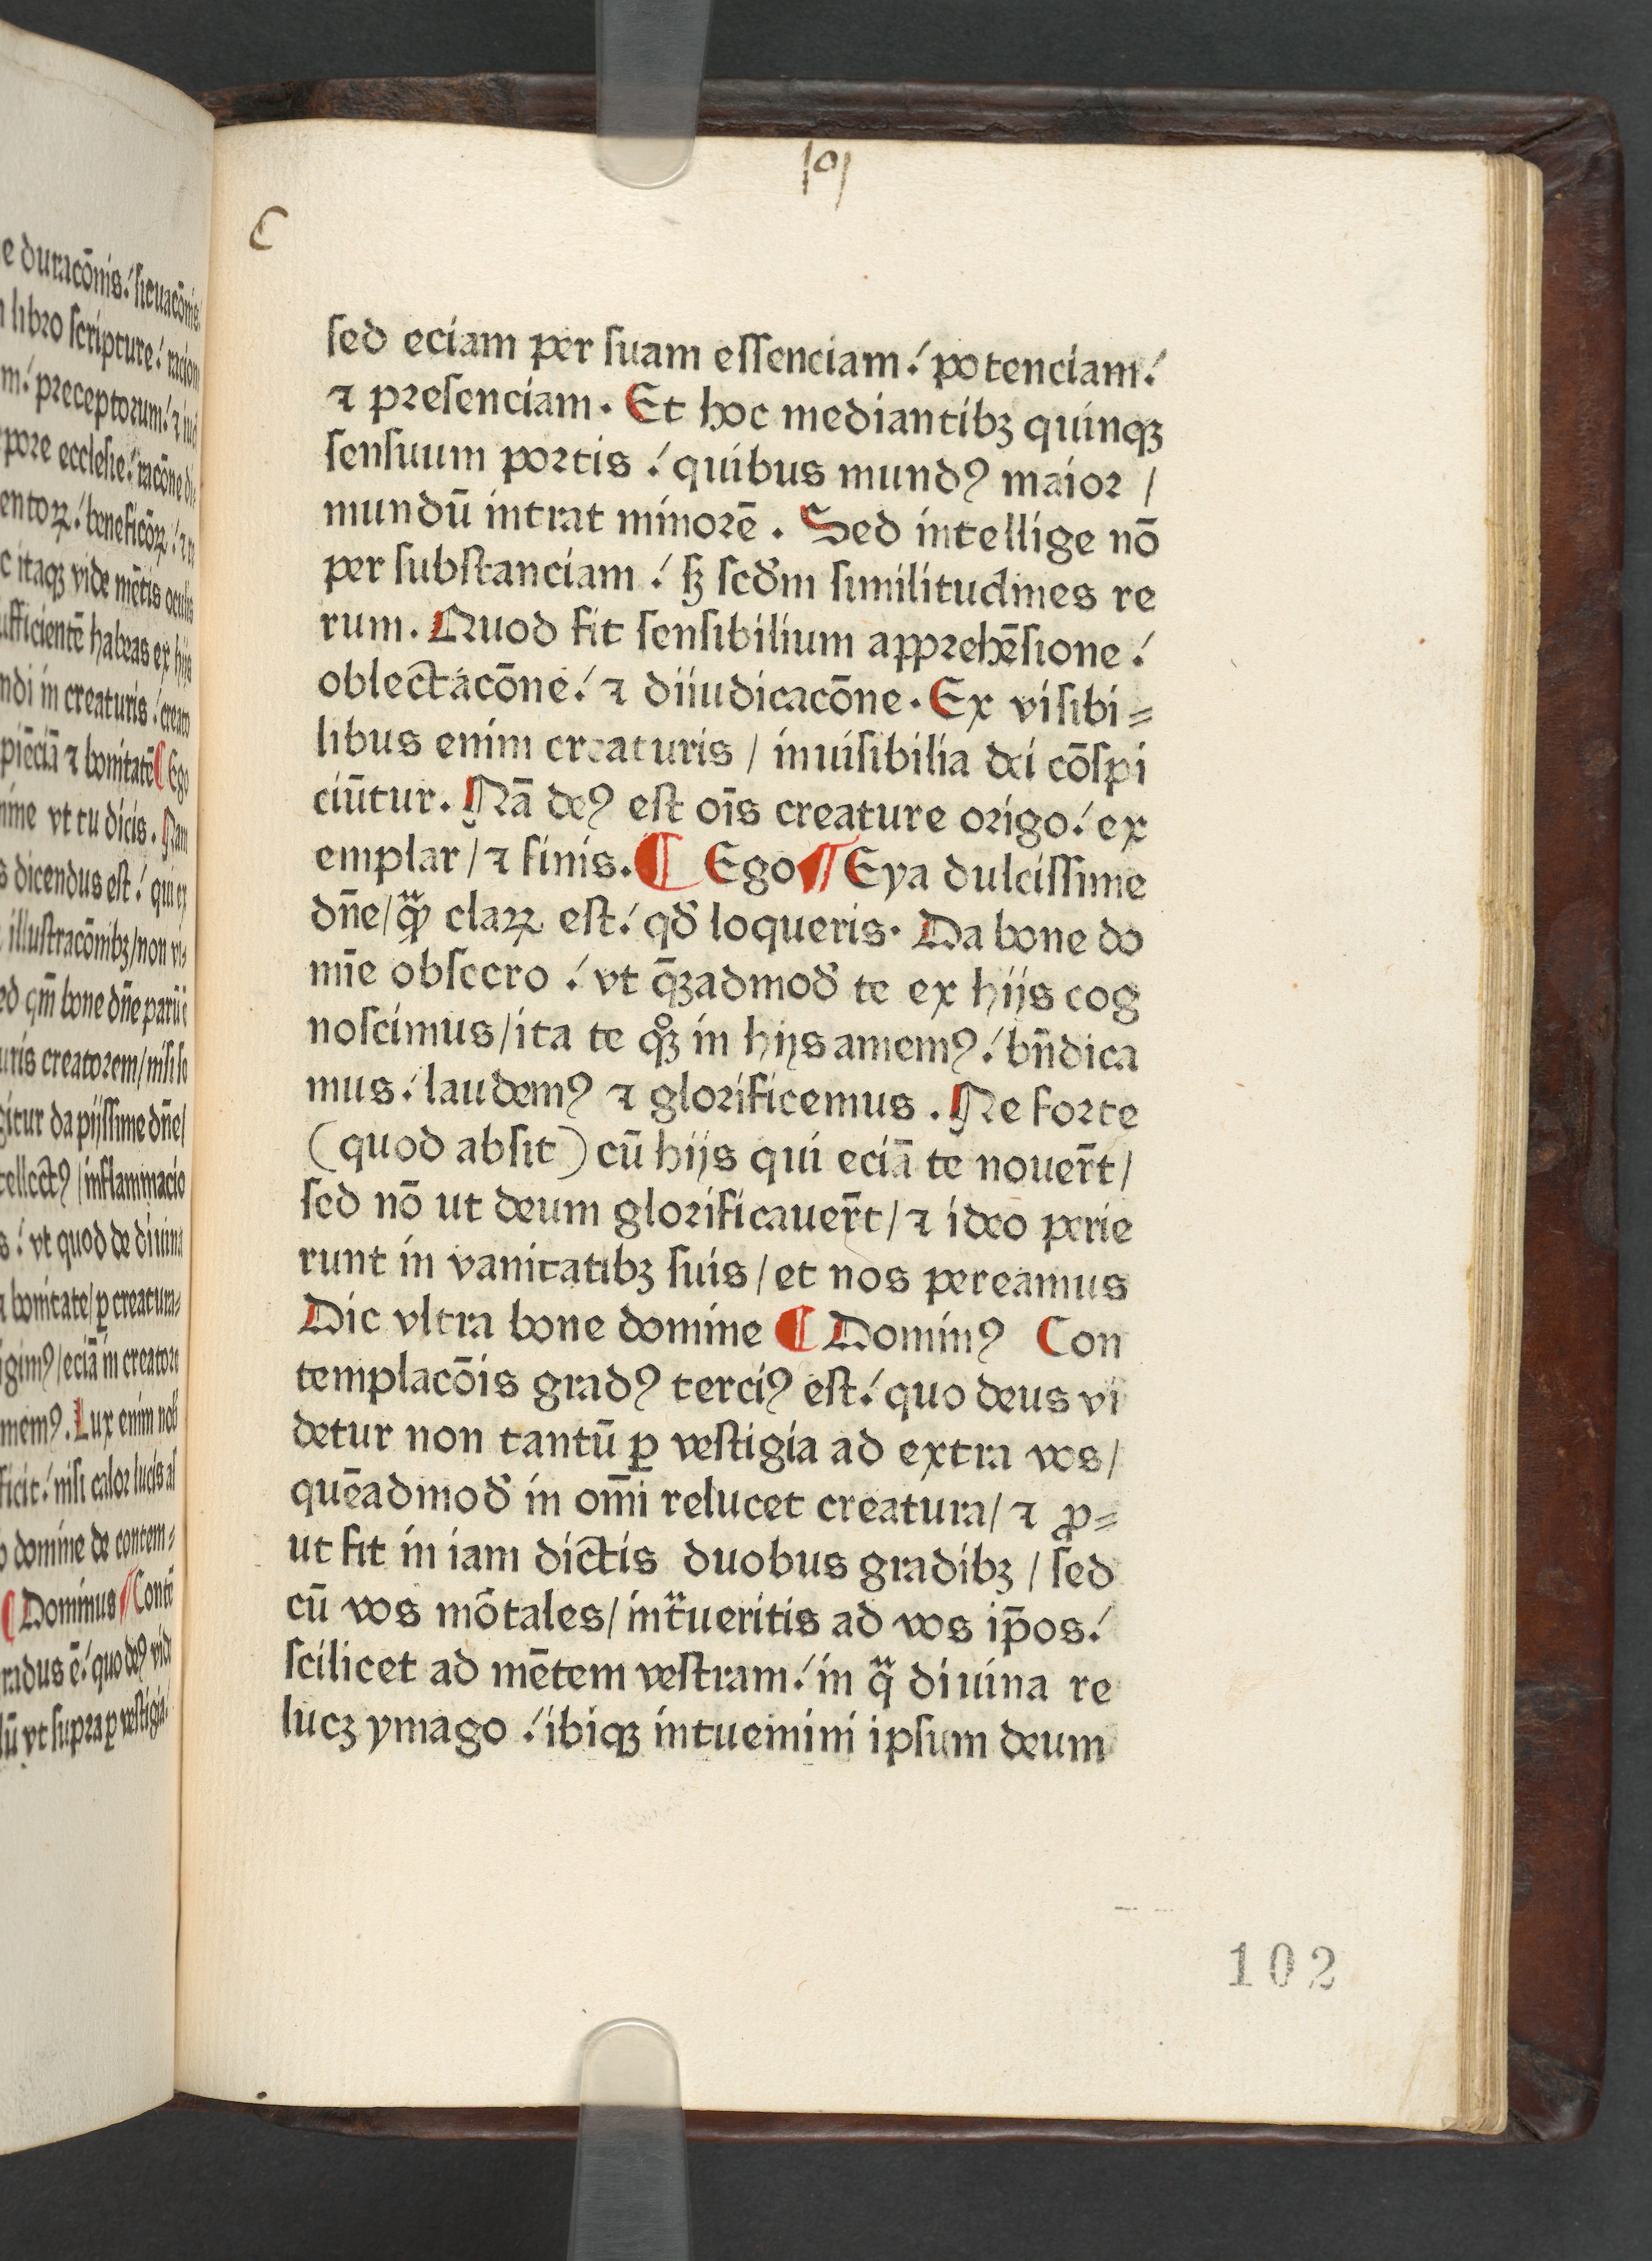 e duracōnis.᾽ situacōnis
libro scripture.᾽ racion
m.᾽ preceptorum.᾽ ⁊ iud
pore ecclesie.᾽ racōne di
entoꝝ.᾽ beneficōꝝ.᾽ ⁊
c itaqꝫ vide mētis oculis
ufficientē habeas ex hijs
ndi in creaturis.᾽ creato
piēciā ⁊ bonitatē ¶ Ego
nime vt tu dicis. Nam
s dicendus est.᾽ qui ex
illustracōnibꝫ/non vi⸗
ed qm̄ bone dn̄e
uris creatorem/nisi
gitur da pijssime dn̄e/
tellectꝰ/inflammacio
s.᾽ vt quod de diuina
⁊ bonitate/ꝑ creatura⸗
igimꝰ/eciā in creatore
memꝰ. Lux enim
ficit.᾽ nisi calor lucis
domine de contem⸗
¶ Dominus ¶ Contē
radus ē.᾽ quo deꝰ vide
lū vt supra ꝑ vestigia/
101
C
sed eciam per suam essenciam.᾽ potenciam.᾽
⁊ presenciam. Et hoc mediantibꝫ quinqꝫ
sensuum portis.᾽ quibus mundꝰ maior /
mundū intrat minorē. Sed intellige nō
per substanciam.᾽ sꝫ scd̄m similitudines re
rum. Quod fit sensibilium apprehēsione.᾽
oblectacōne.᾽ ⁊ diiudicacōne. Ex visibi⸗
libus enim creaturis / inuisibilia dei cōspi
ciūtur. Nā deꝰ est oīs creature origo.᾽ ex
emplar/⁊ finis. ¶ Ego ¶ Eya dulcissime
dn̄e/qͣꝫ claꝝ est.᾽ qd̄ loqueris. Da bone do
mīe obsecro.᾽ vt q̄ꝫadmod̄ te ex hijs cog
noscimus/ita te qͦꝫ in hijs amemꝰ.᾽ bn̄dica
mus.᾽ laudemꝰ ⁊ glorificemus. Ne forte
(quod absit) cū hijs qui eciā te nouer̄t/
sed nō ut deum glorificauer̄t/⁊ ideo perie
runt in vanitatibꝫ suis/et nos pereamus
Dic vltra bone domine ¶ Dominꝰ Con
templacōis gradꝰ terciꝰ est.᾽ quo deus vi
detur non tantū ꝑ vestigia ad extra vos/
quēadmod̄ in om̄i relucet creatura/⁊ ꝓ⸗
ut fit in iam dictis duobus gradibꝫ / sed
cū vos mōtales/intͣueritis ad vos ip̄os.᾽
scilicet ad mētem vestram.᾽ in qͣ diuina re
lucꝫ ymago.᾽ ibiqꝫ intuemini ipsum deum
102